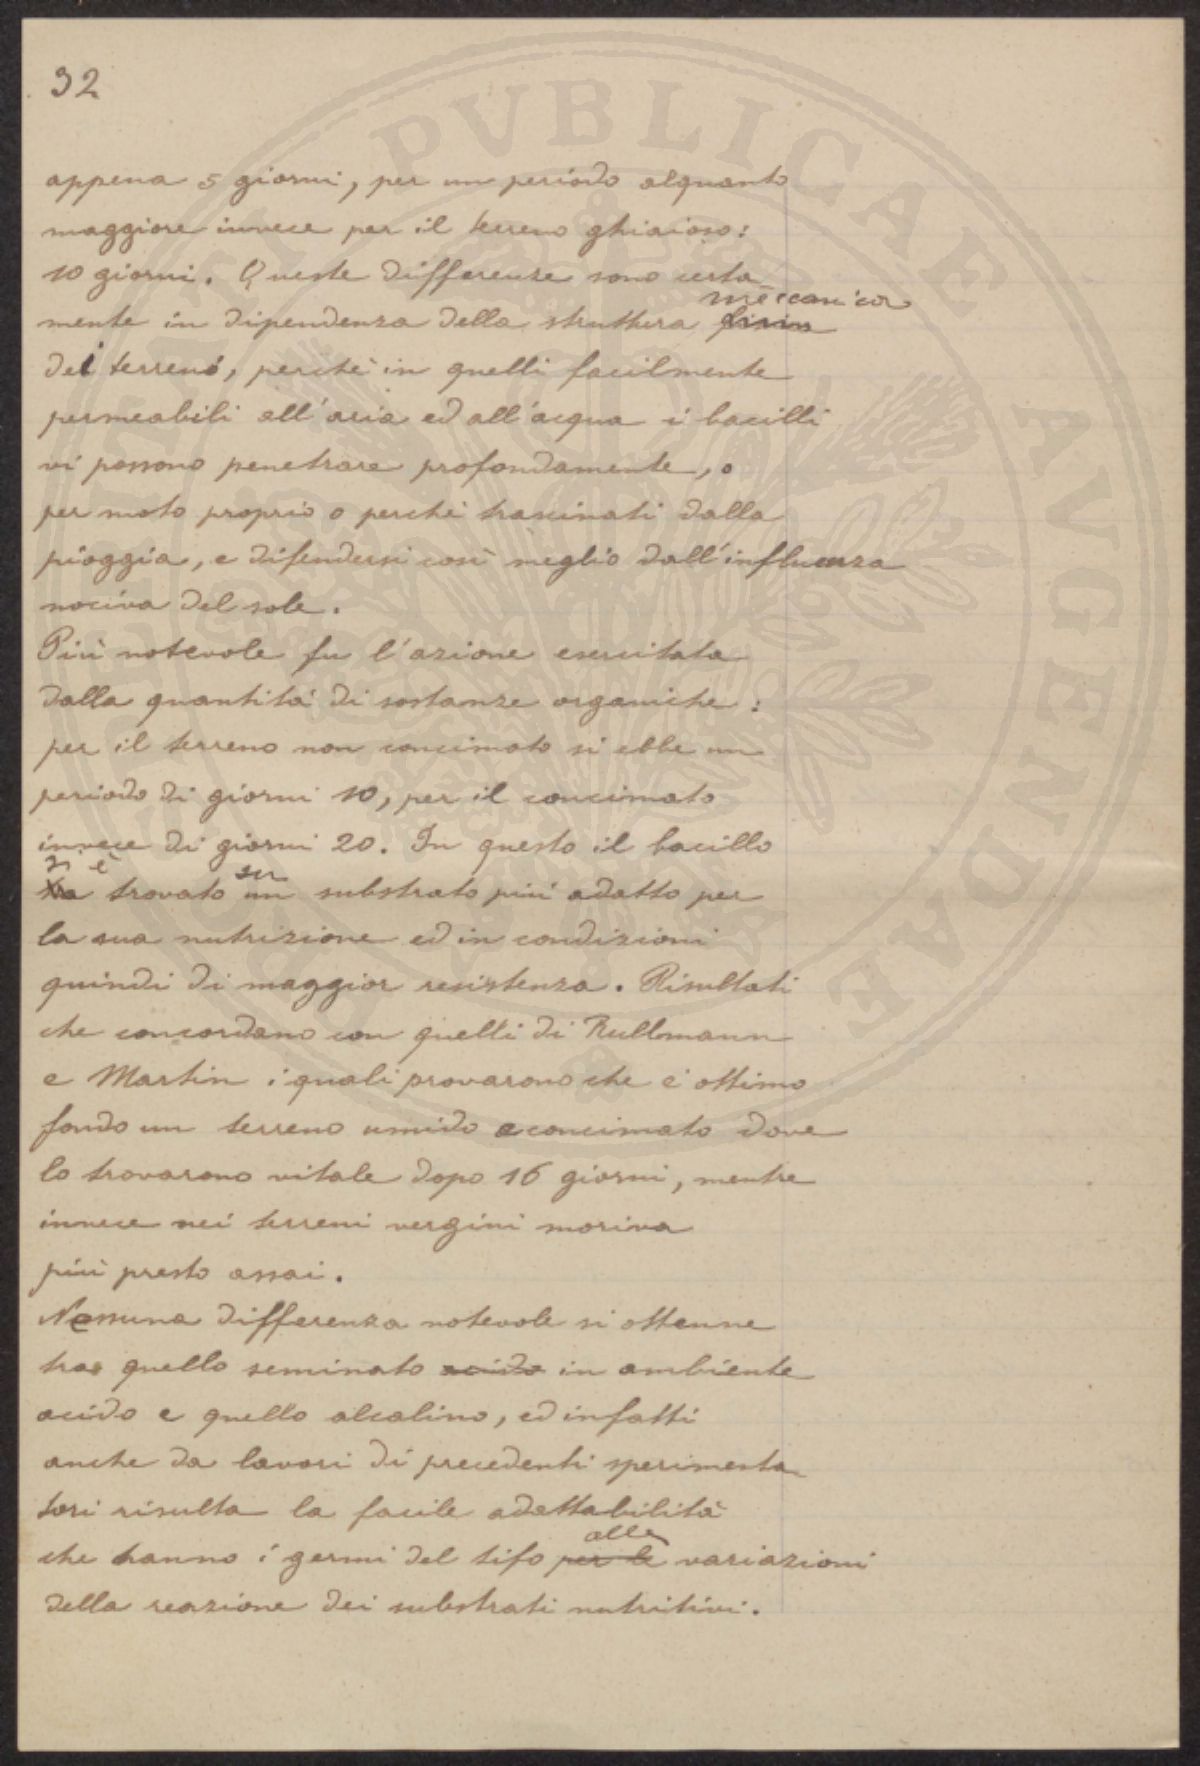 32
appena 5 giorni, per un periodo alquanto
maggiore invece per il terreno ghiaioso:
10 giorni. Queste differenze sono certa-
meccanica
mente in dipendenza della struttura fisica
dei terreni, perchè in quelli facilmente
permeabili all'aria ed all'acqua i bacilli
vi possono penetrare profondamente, o
per moto proprio o perchè trascinati dalla
pioggia, e difendersi così meglio dall'influenza
nociva del sole.
Più notevole fu l'azione esercitata
dalla quantità di sostanze organiche:
per il terreno non concimato si ebbe un
periodo di giorni 10, per il concimato
invece di giorni 20. In questo il bacillo
si è su
ha trovato un substrato più adatto per
la sua nutrizione ed in condizioni
quindi di maggior resistenza. Risultati
che concordano con quelli di Rullmann
e Martin i quali provarono che è ottimo
fondo un terreno umido e concimato dove
lo trovarono vitale dopo 16 giorni, mentre
invece nei terreni vergini moriva
più presto assai.
Nessuna differenza notevole si ottenne
tra quello seminato acido in ambiente
acido e quello alcalino, ed infatti
anche da lavori di precedenti sperimenta-
tori risulta la facile adattabilità
alle
che hanno i germi del tifo per le variazioni
della reazione dei substrati nutritivi.
PVBLICAE AVGENDAE